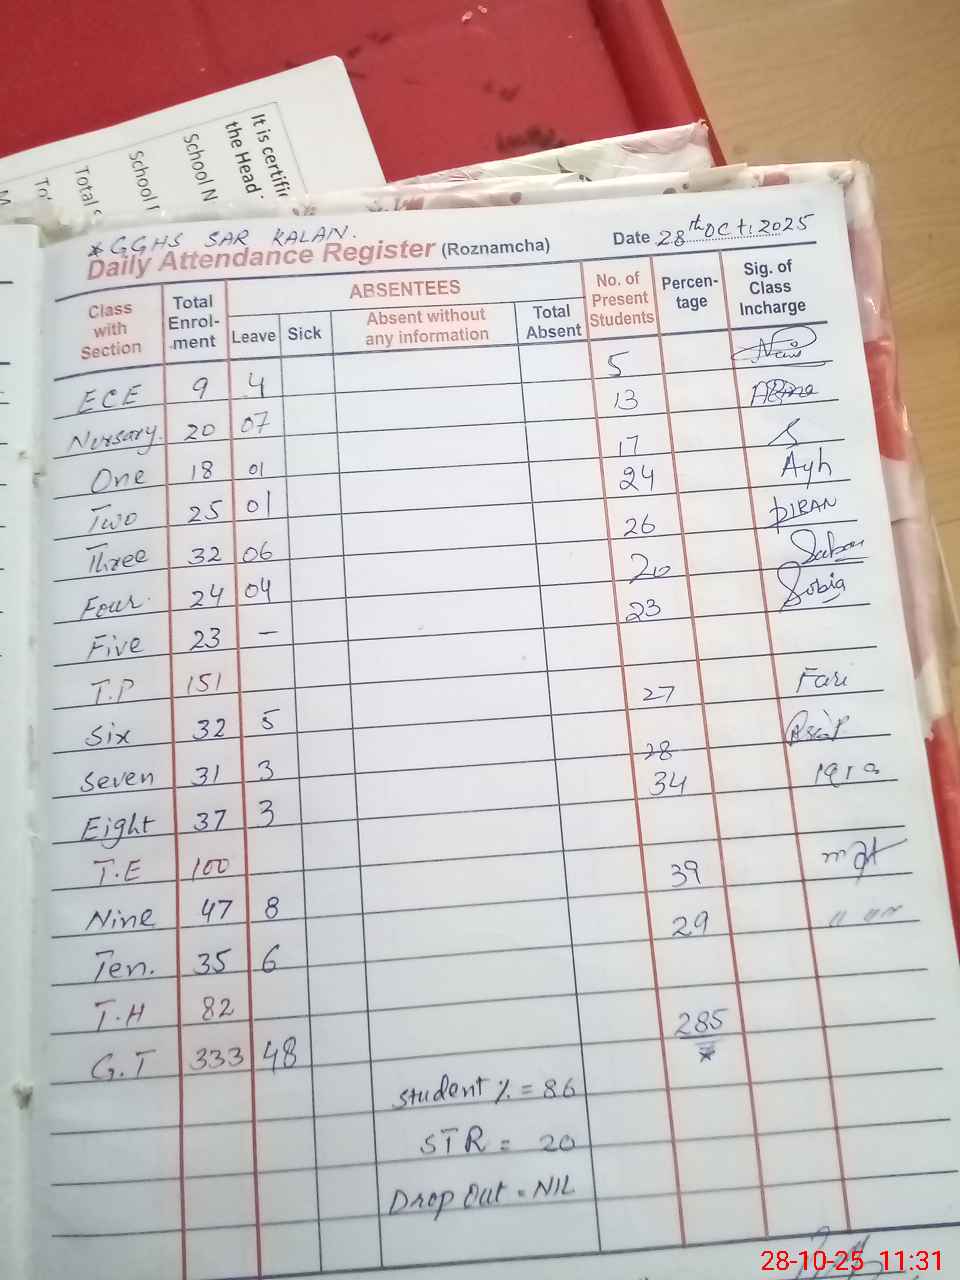 It is certific
the Head
School N
School
Total
To
M
* GGHS SAR KALAN.
Daily Attendance Register (Roznamcha) Date 28th Oct, 2025
Class with Section Total Enrol-ment ABSENTEES No. of Present Students Percen-tage Sig. of Class Incharge
Leave Sick Absent without any information Total Absent
ECE 9 4 5
Nursary. 20 07 13
One 18 01 17
Two 25 01 24 Ayh
Three 32 06 26
Four. 24 04 20
Five 23 — 23 Sobia
T.P 151
Six 32 5 27 Fari
Seven 31 3 28
Eight 37 3 34
T.E 100
Nine 47 8 39
Ten. 35 6 29
T.H 82
G.T 333 48 285
*
Student % = 86
STR = 20
Drop Out = NIL
28-10-25 11:31